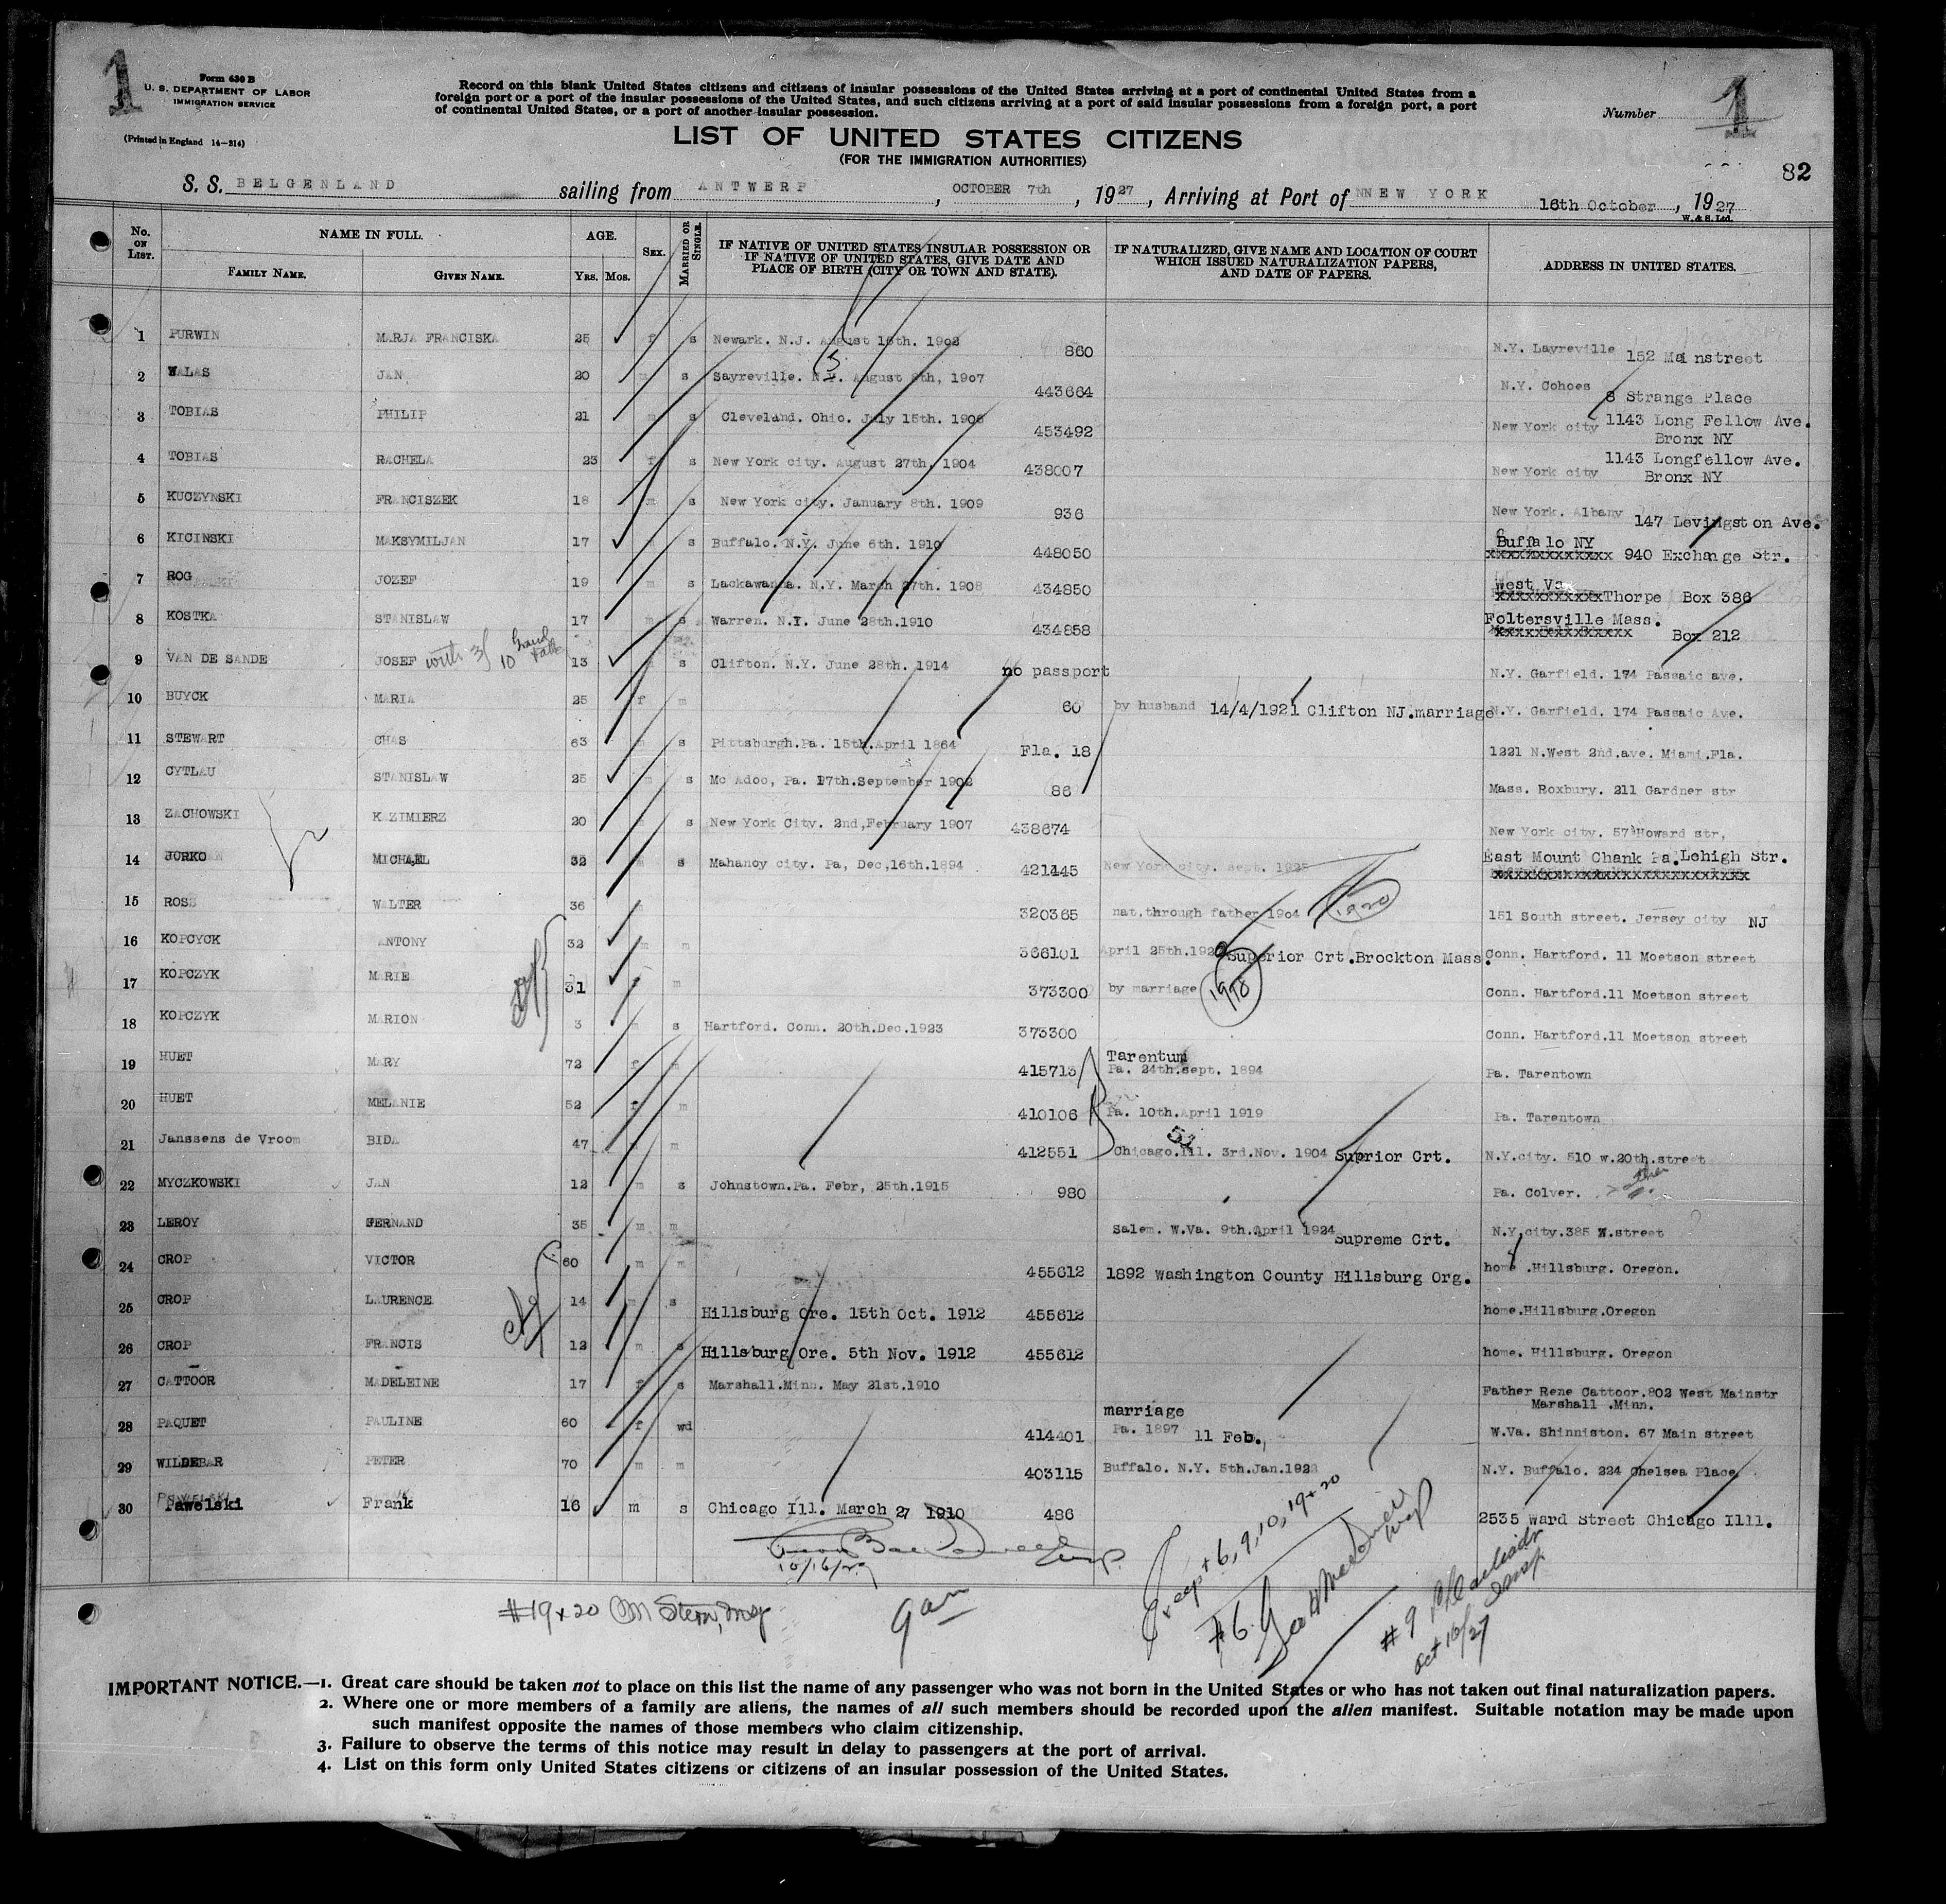 1
Form 630 B
U. S. DEPARTMENT OF LABOR
IMMIGRATION SERVICE
(Printed in England 14—214)
Record on this blank United States citizens and citizens of insular possessions of the United States arriving at a port of continental United States from a
foreign port or a port of the insular possessions of the United States, and such citizens arriving at a port of said insular possessions from a foreign port, a port
of continental United States, or a port of another insular possession.
Number 1
LIST OF UNITED STATES CITIZENS
(FOR THE IMMIGRATION AUTHORITIES)
82
S. S. BELGENLAND sailing from ANTWERP, OCTOBER 7th, 1927, Arriving at Port of NNEW YORK 16th October, 1927
W. & S. Ltd.
No. on List. NAME IN FULL. FAMILY NAME. GIVEN NAME. AGE. Yrs. Mos. SEX. MARRIED OR SINGLE. IF NATIVE OF UNITED STATES INSULAR POSSESSION OR IF NATIVE OF UNITED STATES, GIVE DATE AND PLACE OF BIRTH (CITY OR TOWN AND STATE). IF NATURALIZED, GIVE NAME AND LOCATION OF COURT WHICH ISSUED NATURALIZATION PAPERS, AND DATE OF PAPERS. ADDRESS IN UNITED STATES.
1 PURWIN MARJA FRANCISKA 25 f s Newark. N.J. August 16th. 1902 860 N.Y. Layreville 152 Mainstreet
2 WALAS JAN 20 m s Sayreville. N.Y. August 8th, 1907 443664 N.Y. Cohoes 8 Strange Place
3 TOBIAS PHILIP 21 m s Cleveland. Ohio. July 15th. 1906 453492 New York city 1143 Long Fellow Ave. Bronx NY
4 TOBIAS RACHELA 23 f s New York city. August 27th, 1904 438007 New York city 1143 Longfellow Ave. Bronx NY
5 KUCZYNSKI FRANCISZEK 18 m s New York city. January 8th. 1909 936 New York. Albany 147 Levingston Ave.
6 KICINSKI MAKSYMILJAN 17 s Buffalo. N.Y. June 6th. 1910 448050 Buffalo NY xxxxxxxxxxxxx 940 Exchange Str.
7 ROG JOZEF 19 m s Lackawanna. N.Y. March 27th. 1908 434850 West Va xxxxxxxxxxx Thorpe Box 386
8 KOSTKA STANISLAW 17 m s Warren. N.Y. June 28th.1910 434858 Foltersville Mass. xxxxxxxxxxxxxx Box 212
9 VAN DE SANDE JOSEF with 10 13 s Clifton. N.Y. June 28th. 1914 no passport N.Y. Garfield. 174 Passaic ave.
10 BUYCK MARIA 25 f m 60 by husband 14/4/1921 Clifton NJ.marriage N.Y. Garfield. 174 Passaic Ave.
11 STEWART CHAS 63 m s Pittsburgh.Pa. 15th.April 1864 Fla. 18 1221 N.West 2nd.ave. Miami.Fla.
12 CYTLAU STANISLAW 25 m s Mc Adoo, Pa. 17th.September 1902 86 Mass. Roxbury. 211 Gardner str
13 ZACHOWSKI KAZIMIERZ 20 s New York City. 2nd,February 1907 438674 New York city. 57 Howard str,
14 JORKO MICHAEL 32 m s Mahanoy city. Pa, Dec,16th.1894 421445 New York city. sept. 1925 East Mount Chank Pa. Lehigh Str. xxxxxxxxxxxxxxxxxxxxxxxxxx
15 ROSS WALTER 36 320365 nat.through father 1904 1920 151 South street. Jersey city NJ
16 KOPCYCK ANTONY 32 m m 366101 April 25th.192 Superior Crt.Brockton Mass. Conn. Hartford. 11 Moetson street
17 KOPCZYK MARIE 31 f m 373300 by marriage 1918 Conn. Hartford.11 Moetson street
18 KOPCZYK MARION 3 m s Hartford. Conn. 20th.Dec.1923 373300 Conn. Hartford.11 Moetson street
19 HUET MARY 72 f m 415713 Tarentum Pa. 24th.sept. 1894 Pa. Tarentown
20 HUET MELANIE 52 f m 410106 Pa. 10th.April 1919 Pa. Tarentown
21 Janssens de Vroom BIDA 47 m 412551 Chicago.Ill. 3rd.Nov. 1904 Suprior Crt. N.Y.city. 510 w.20th.street
22 MYCZKOWSKI JAN 12 m s Johnstown.Pa. Febr, 25th.1915 980 Pa. Colver.
23 LEROY FERNAND 35 m m Salem. W.Va. 9th.April 1924 Supreme Crt. N.Y.city.385 W.street
24 CROP VICTOR 60 m m 455612 1892 Washington County Hillsburg Org. home.Hillsburg. Oregon.
25 CROP LAURENCE 14 m s Hillsburg Ore. 15th Oct. 1912 455612 home.Hillsburg.Oregon
26 CROP FRANCIS 12 m s Hillsburg Ore. 5th Nov. 1912 455612 home. Hillsburg. Oregon
27 CATTOOR MADELEINE 17 f s Marshall.Minn. May 21st.1910 Father Rene Cattoor.802 West Mainstr Marshall .Minn.
28 PAQUET PAULINE 60 f wd 414401 marriage Pa. 1897 11 Feb., W.Va. Shinniston. 67 Main street
29 WILDEBAR PETER 70 m m 403115 Buffalo. N.Y. 5th.Jan.192 N.Y. Buffalo. 224 Chelsea Place
30 Pawelski Frank 16 m s Chicago Ill. March 27 1910 486 2535 Ward Street Chicago Illl.
10/16/27
Except 6, 9, 10, 19+20
#19+20 CM Stern, Insp
9 am
#6.
#9
Insp
Oct 16/27
IMPORTANT NOTICE.—1. Great care should be taken not to place on this list the name of any passenger who was not born in the United States or who has not taken out final naturalization papers.
2. Where one or more members of a family are aliens, the names of all such members should be recorded upon the alien manifest. Suitable notation may be made upon
such manifest opposite the names of those members who claim citizenship.
3. Failure to observe the terms of this notice may result in delay to passengers at the port of arrival.
4. List on this form only United States citizens or citizens of an insular possession of the United States.